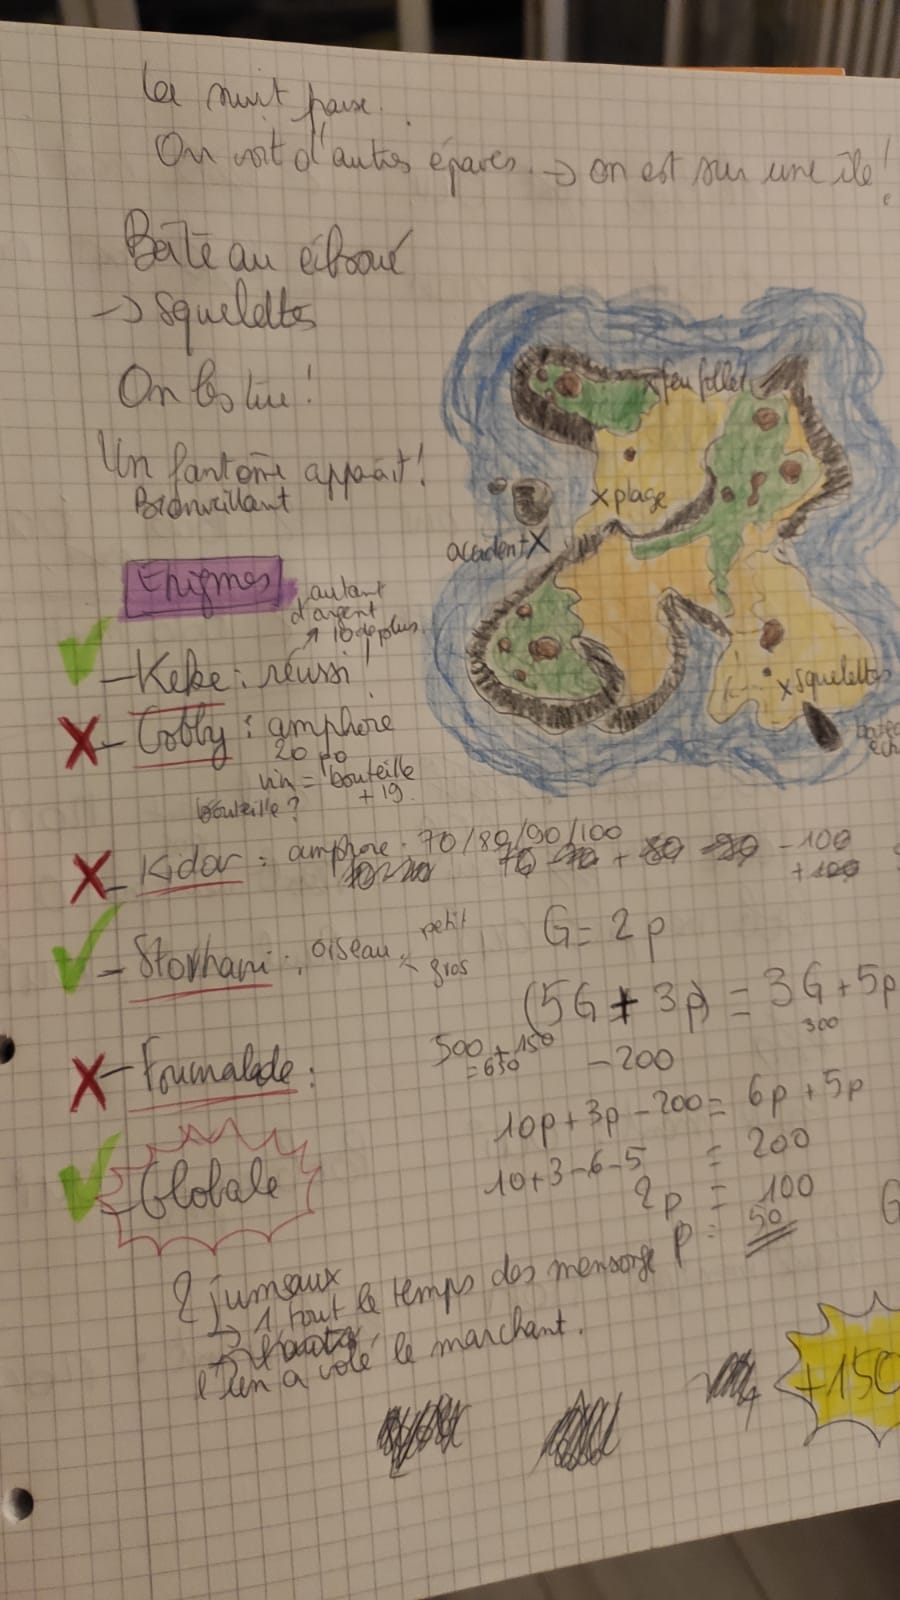 La nuit passe.
On voit d'autres épaves. → on est sur une île!
Bâteau échoué
→ squelettes
On les tue!
Un fantôme apparait!
Bienveillant
x feu follet
x plage
accident X
x squelettes
Enigmes
autant
d'argent
↗ 10 de plus
- Keke : réussi!
X - Cobby : amphore
20 po
vin = bouteille
+ 19.
bouteille?
X - Kidor : amphore . 70/80/90/100
- 100
+ 100
- Storhani : oiseau < petit
gros
G = 2p
(5G + 3p) = 3G + 5p
300
500 + 150
= 650
- 200
X - Foumalade :
10p + 3p - 200 = 6p + 5p
10 + 3 - 6 - 5 = 200
2p = 100
p = 50
- Globale
2 jumeaux
→ 1 tout le temps des mensonge
l'un a volé le marchant.
+150